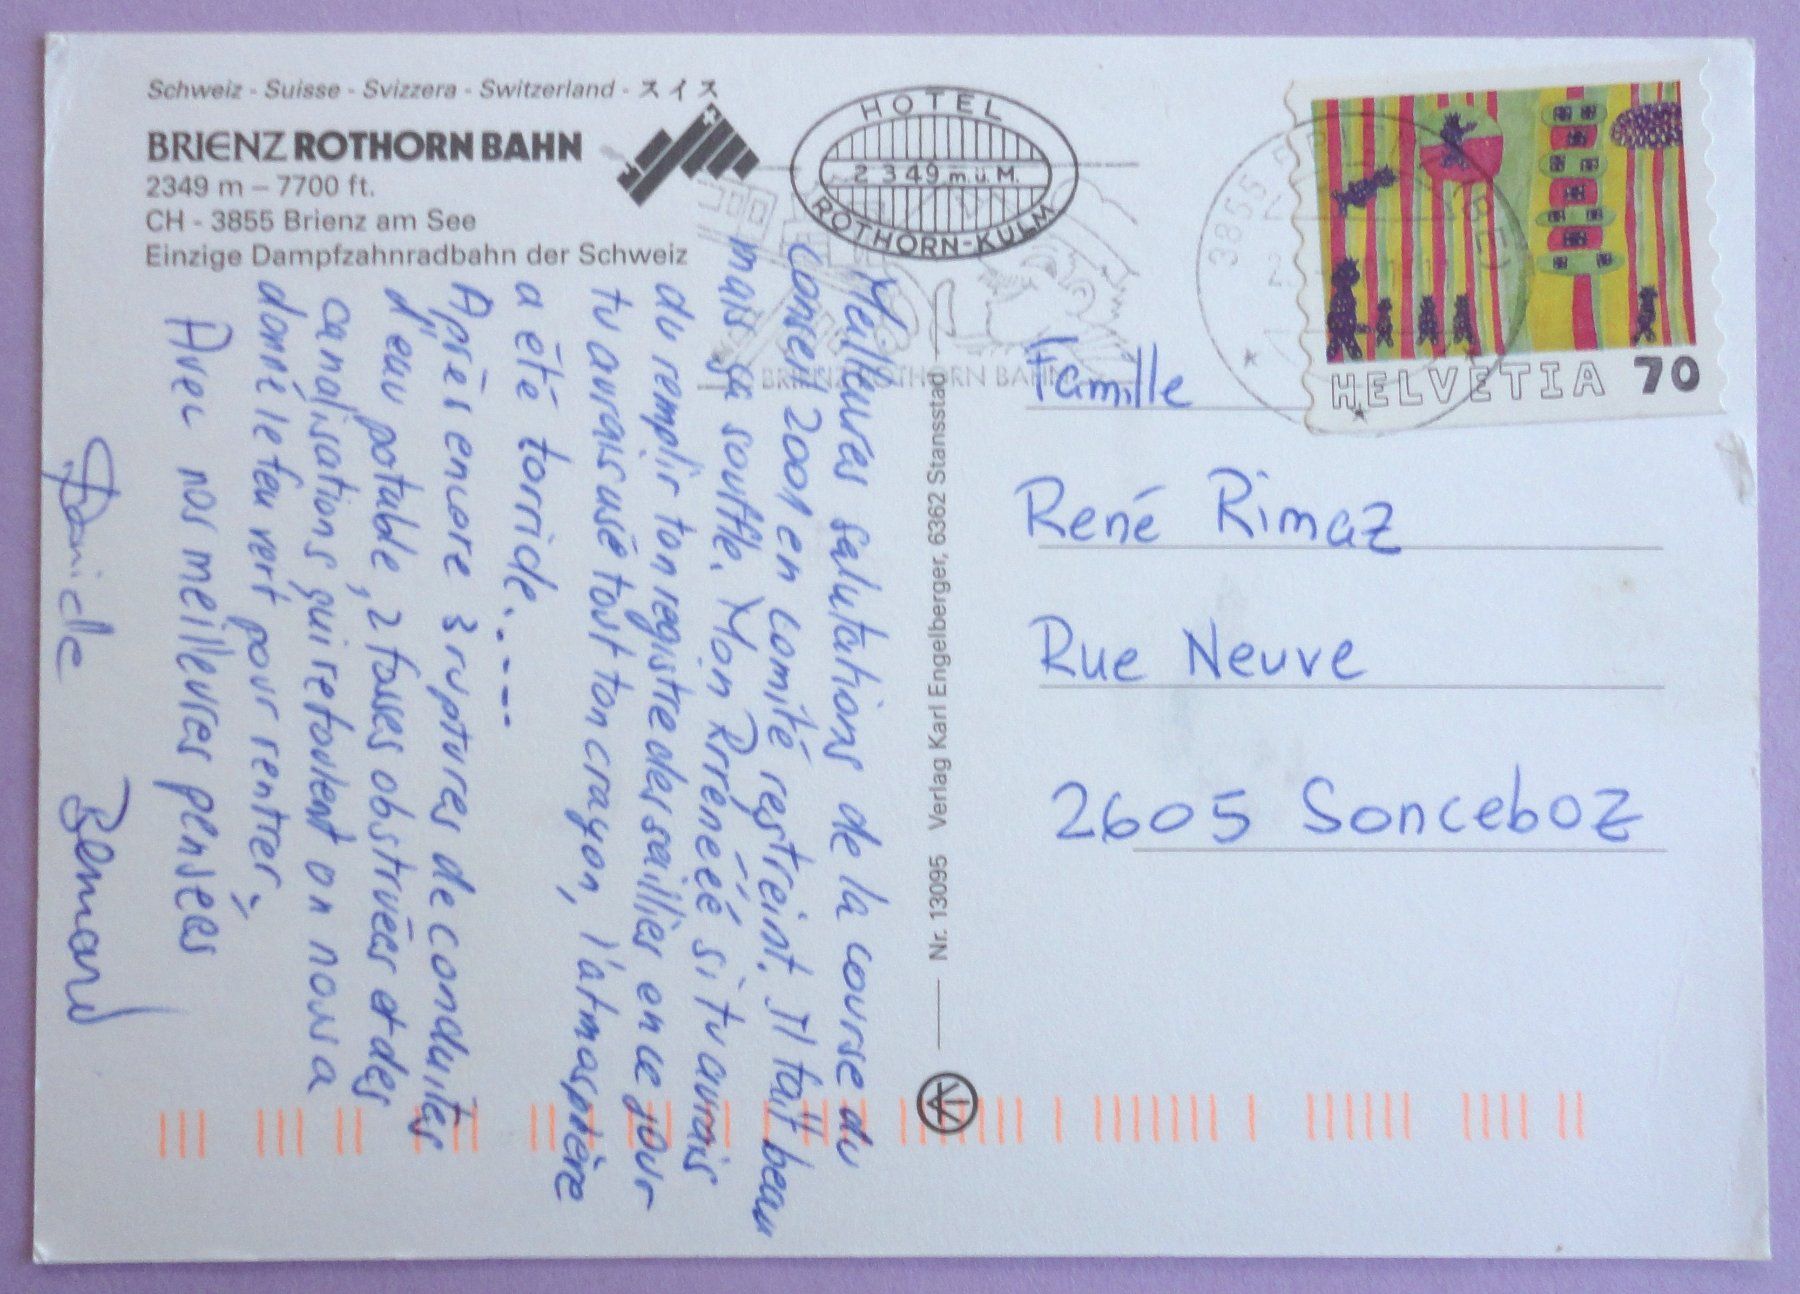 Schweiz - Suisse - Svizzera - Switzerland - スイス
BRIENZ ROTHORN BAHN
2349 m – 7700 ft.
CH - 3855 Brienz am See
Einzige Dampfzahnradbahn der Schweiz
HOTEL
2349 m.ü.M.
ROTHORN-KULM
BRIENZ ROTHORN BAHN
3855
HELVETIA 70
Meilleures salutations de la course du
conseil 2001 en comité restreint. Il fait beau
mais ça souffle. Mon Rrrénééé si tu avais
du remplir ton registre des saillies en ce jour
tu aurais usé tout ton crayon, l'atmosphère
a été torride.----
Après encore 3 ruptures de conduites
d'eau potable, 2 fosses obstruées et des
canalisations qui refoulent on nous a
donné le feu vert pour rentrer.
Avec nos meilleures pensées
Danielle Bernard
Nr. 13095 Verlag Karl Engelberger, 6362 Stansstad
Famille
René Rimaz
Rue Neuve
2605 Sonceboz